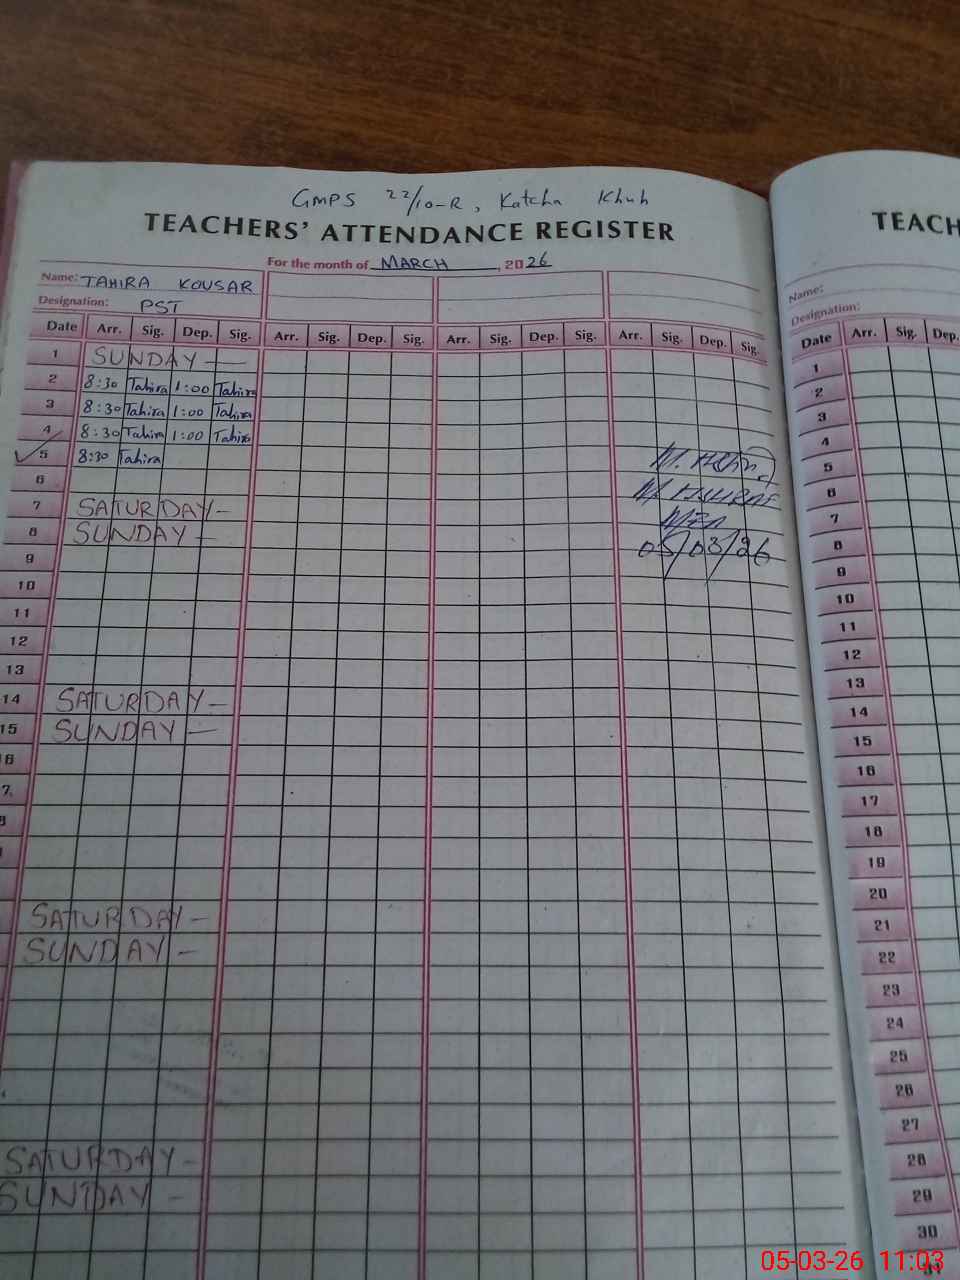 GMPS 22/10-R, Katcha Khuh
TEACHERS' ATTENDANCE REGISTER
For the month of MARCH, 2026
Name: TAHIRA KOUSAR
Designation: PST
Date Arr. Sig. Dep. Sig. Arr. Sig. Dep. Sig. Arr. Sig. Dep. Sig. Arr. Sig. Dep. Sig.
1 SUNDAY —
2 8:30 Tahira 1:00 Tahira
3 8:30 Tahira 1:00 Tahira
4 8:30 Tahira 1:00 Tahira
5 8:30 Tahira
6
7 SATURDAY -
8 SUNDAY -
M. ASHRAF
05/03/26
9
10
11
12
13
14 SATURDAY -
15 SUNDAY -
SATURDAY -
SUNDAY -
SATURDAY -
SUNDAY -
TEACH
Name:
Designation:
Date Arr. Sig. Dep.
1
2
3
4
5
6
7
8
9
10
11
12
13
14
15
16
17
18
19
20
21
22
23
24
25
26
27
28
29
30
31
05-03-26 11:03